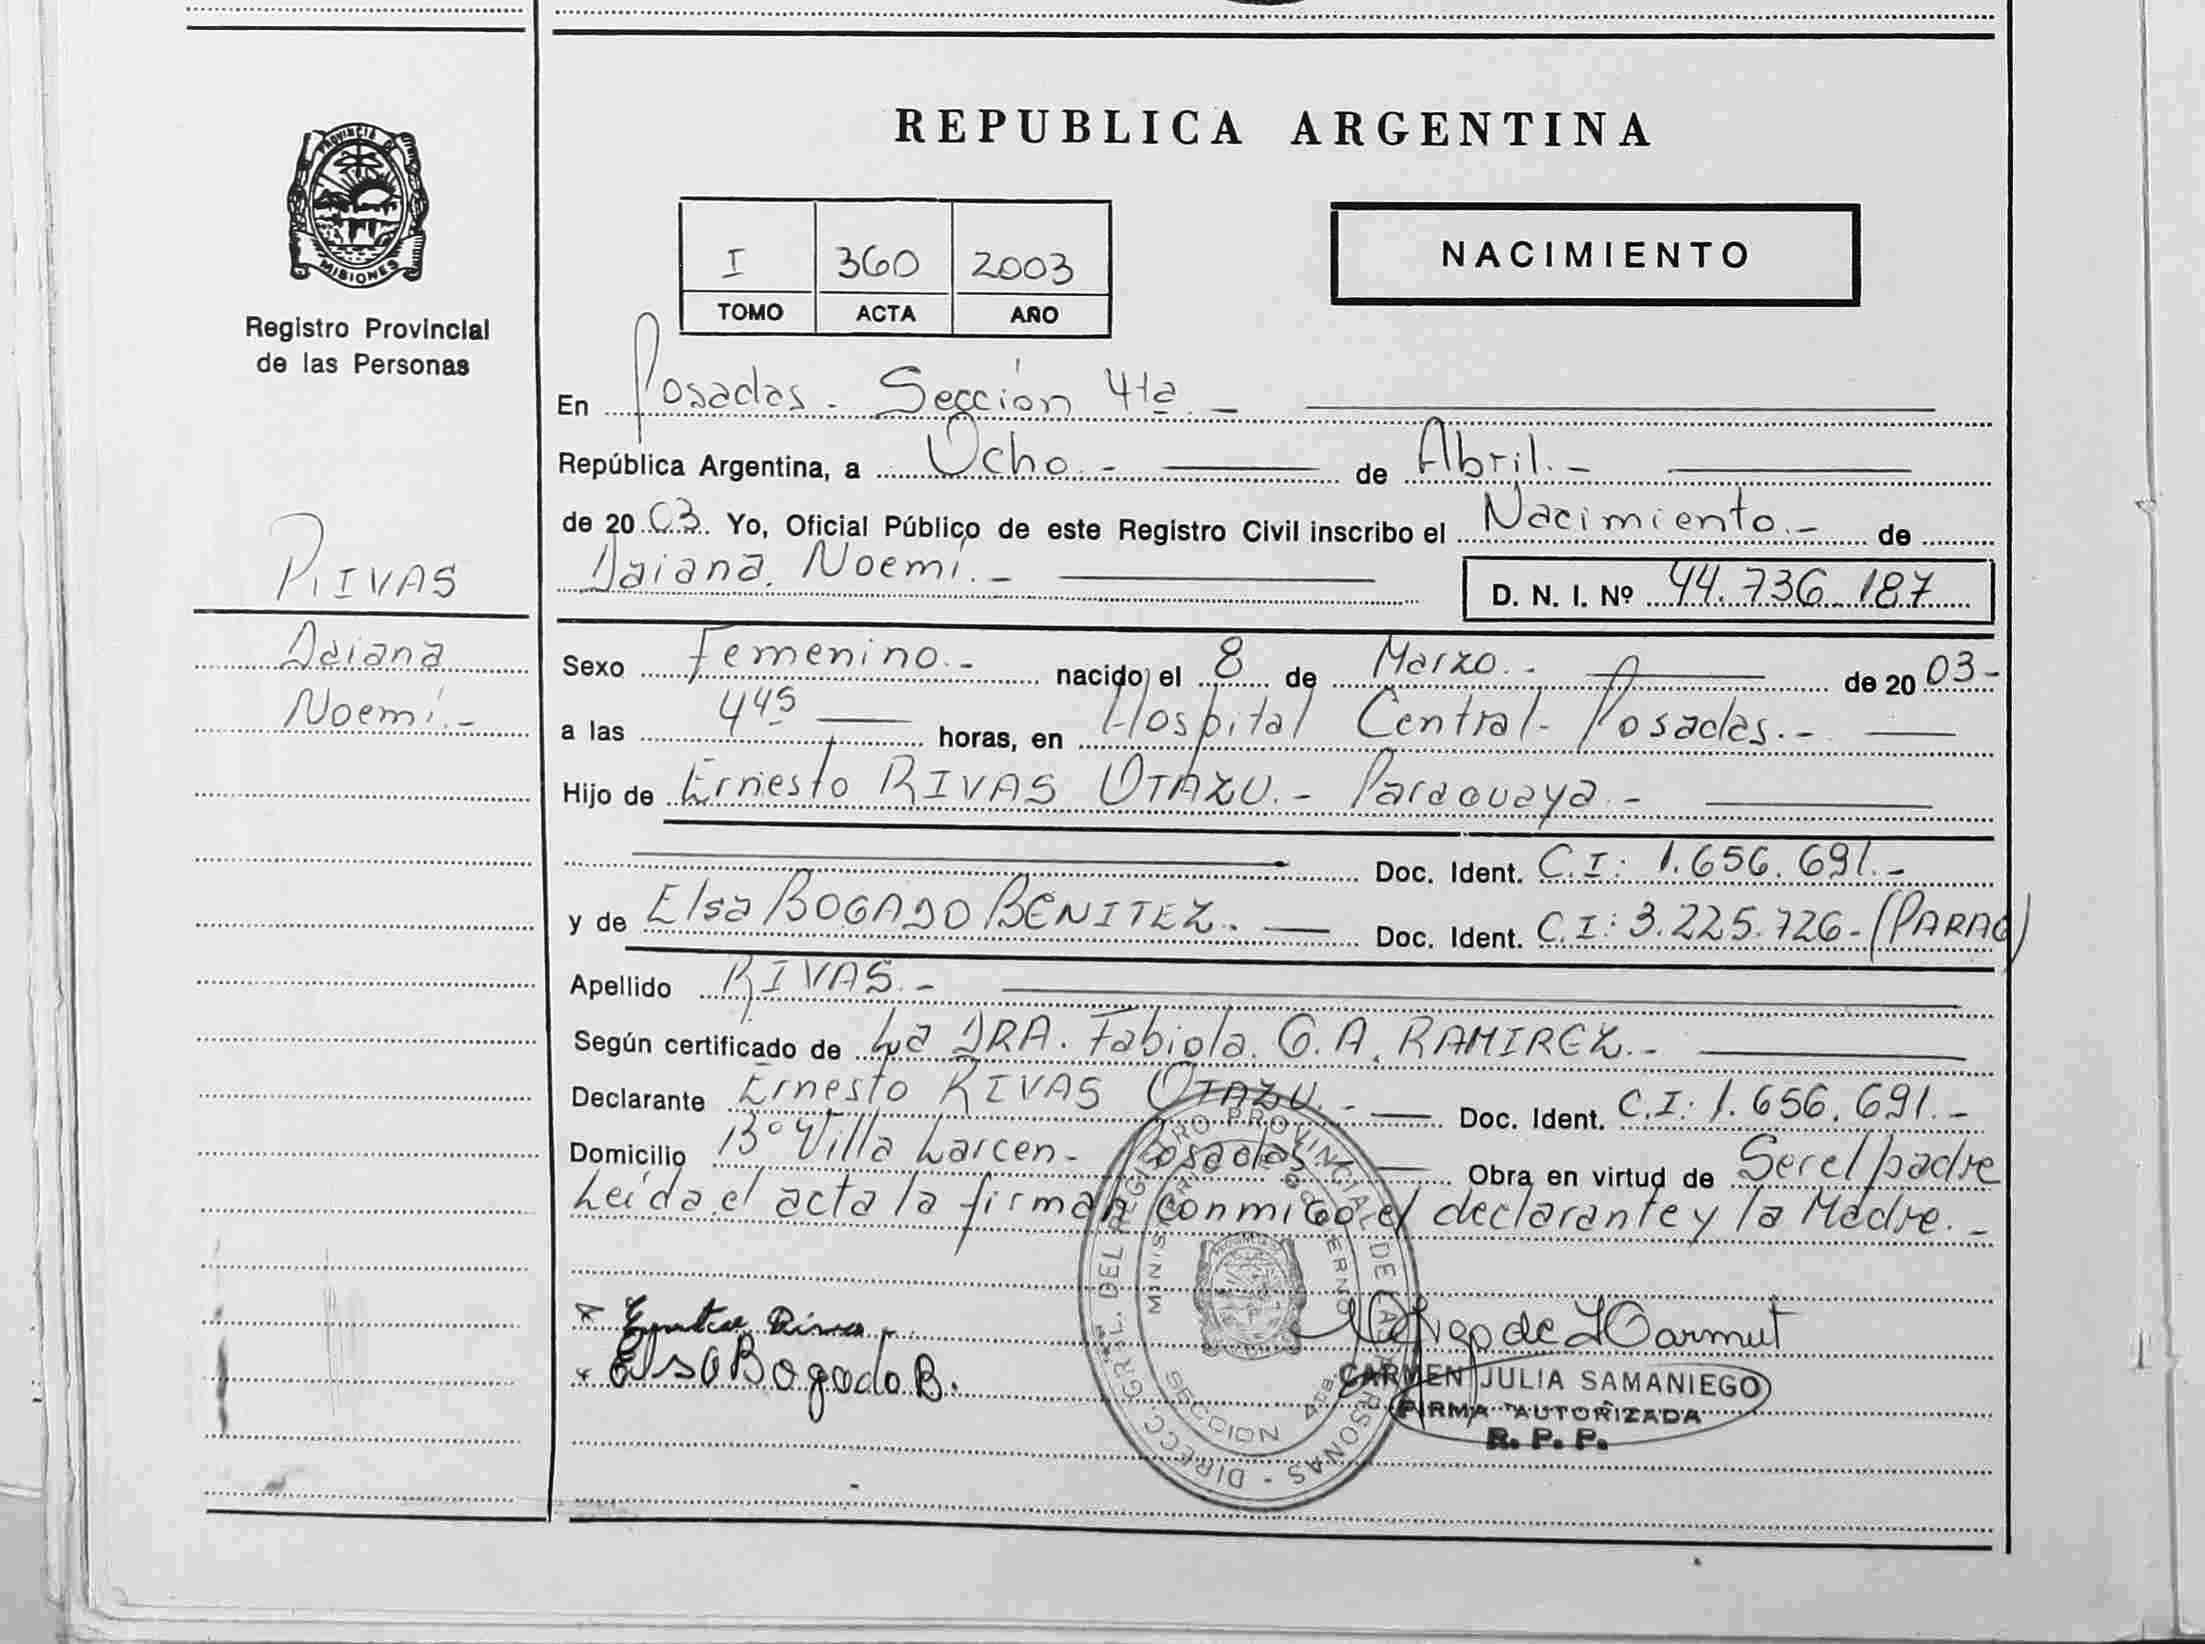 REPUBLICA ARGENTINA
PROVINCIA DE
MISIONES
Registro Provincial
de las Personas
I 360 2003
TOMO ACTA AÑO
NACIMIENTO
En Posadas. Sección 4ta.-
República Argentina, a Ocho.- de Abril.-
de 2003. Yo, Oficial Público de este Registro Civil inscribo el Nacimiento.- de
Daiana Noemí.-
D. N. I. Nº 44.736.187
RIVAS
Daiana
Noemí.-
Sexo Femenino.- nacido el 8 de Marzo.- de 2003-
a las 4 45 horas, en Hospital Central- Posadas.-
Hijo de Ernesto RIVAS OTAZU.- Paraguaya.-
Doc. Ident. C.I: 1.656.691.-
y de Elsa BOGADO BENITEZ.- Doc. Ident. C.I: 3.225.726-(PARAG)
Apellido RIVAS.-
Según certificado de La DRA. Fabiola. G.A. RAMIREZ.-
Declarante Ernesto RIVAS OTAZU.- Doc. Ident. C.I: 1.656.691.-
Domicilio Bº Villa Larcen- Posadas.- Obra en virtud de Ser el padre
Leída el acta la firman conmigo el declarante y la Madre.-
Elsa Bogado B.
DIRECC. GRAL. DEL REGISTRO PROVINCIAL DE LAS PERSONAS -
SECCION 4ta.
CARMEN JULIA SAMANIEGO
FIRMA AUTORIZADA
R. P. P.